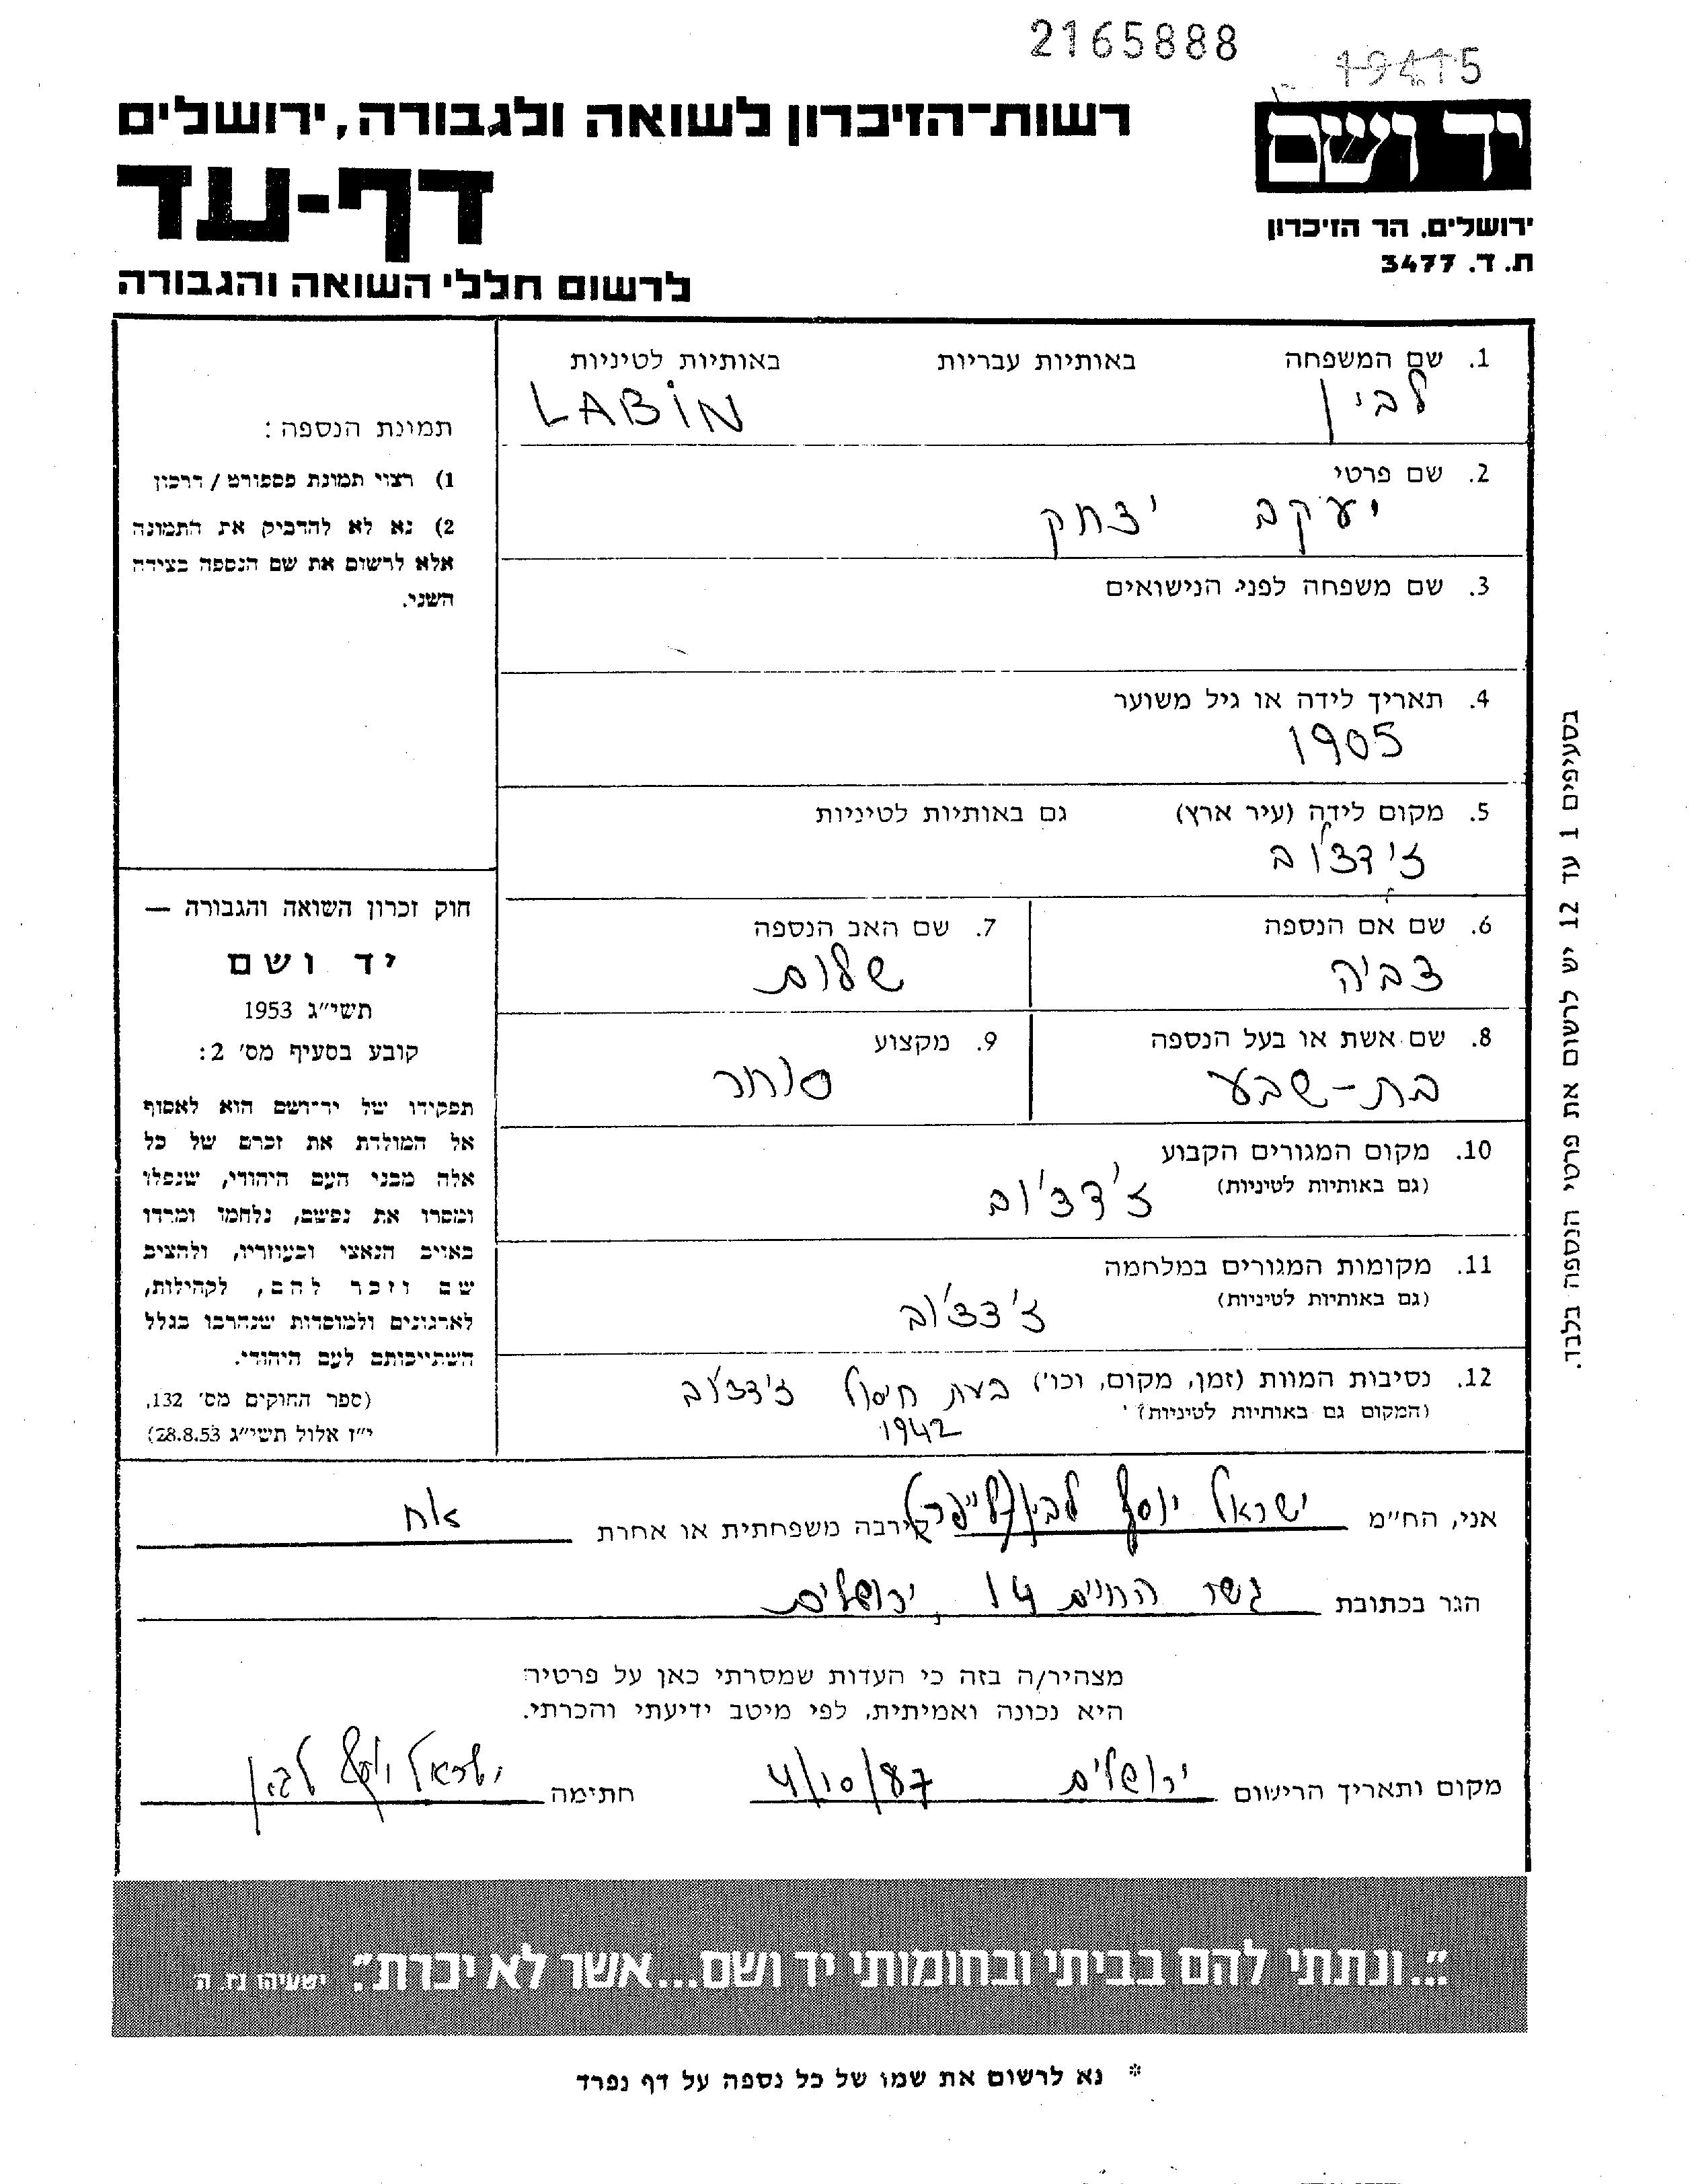 2165888
19415
יד ושם
ירושלים. הר הזיכרון
ת. ד. 3477
רשות-הזיכרון לשואה ולגבורה, ירושלים
דף-עד
לרשום חללי השואה והגבורה
1. שם המשפחה באותיות עבריות באותיות לטיניות
לבין LABIN
2. שם פרטי
יעקב יצחק
3. שם משפחה לפני הנישואים
4. תאריך לידה או גיל משוער
1905
5. מקום לידה (עיר ארץ) גם באותיות לטיניות
ז'ידצ'וב
6. שם אם הנספה
צביה
7. שם האב הנספה
שלום
8. שם אשת או בעל הנספה
בת-שבע
9. מקצוע
סוחר
10. מקום המגורים הקבוע
(גם באותיות לטיניות)
ז'דצ'וב
11. מקומות המגורים במלחמה
(גם באותיות לטיניות)
ז'דצ'וב
12. נסיבות המוות (זמן, מקום, וכו') בעת חיסול ז'ידצ'וב
(המקום גם באותיות לטיניות)
1942
תמונת הנספה:
1) רצוי תמונת פספורט / דרכון
2) נא לא להדביק את התמונה
אלא לרשום את שם הנספה בצידה
השני.
חוק זכרון השואה והגבורה —
יד ושם
תשי״ג 1953
קובע בסעיף מס׳ 2:
תפקידו של יד־ושם הוא לאסוף
אל המולדת את זכרם של כל
אלה מבני העם היהודי, שנפלו
ומסרו את נפשם, נלחמו ומרדו
באויב הנאצי ובעוזריו, ולהציב
שם וזכר להם, לקהילות,
לארגונים ולמוסדות שנהרבו בגלל
השתייכותם לעם היהודי.
(ספר החוקים מס׳ 132,
י״ז אלול תשי״ג 28.8.53)
בסעיפים 1 עד 12 יש לרשום את פרטי הנספה בלבד.
אני, הח״מ ישראל יוסף לבין קירבה משפחתית או אחרת אח
הגר בכתובת גשר החיים 14, ירושלים
מצהיר/ה בזה כי העדות שמסרתי כאן על פרטיה
היא נכונה ואמיתית, לפי מיטב ידיעתי והכרתי.
מקום ותאריך הרישום ירושלים 4/10/87 חתימה ישראל יוסף לבין
״...ונתתי להם בביתי ובחומותי יד ושם...אשר לא יכרת״. ישעיהו נו. ה
* נא לרשום את שמו של כל נספה על דף נפרד